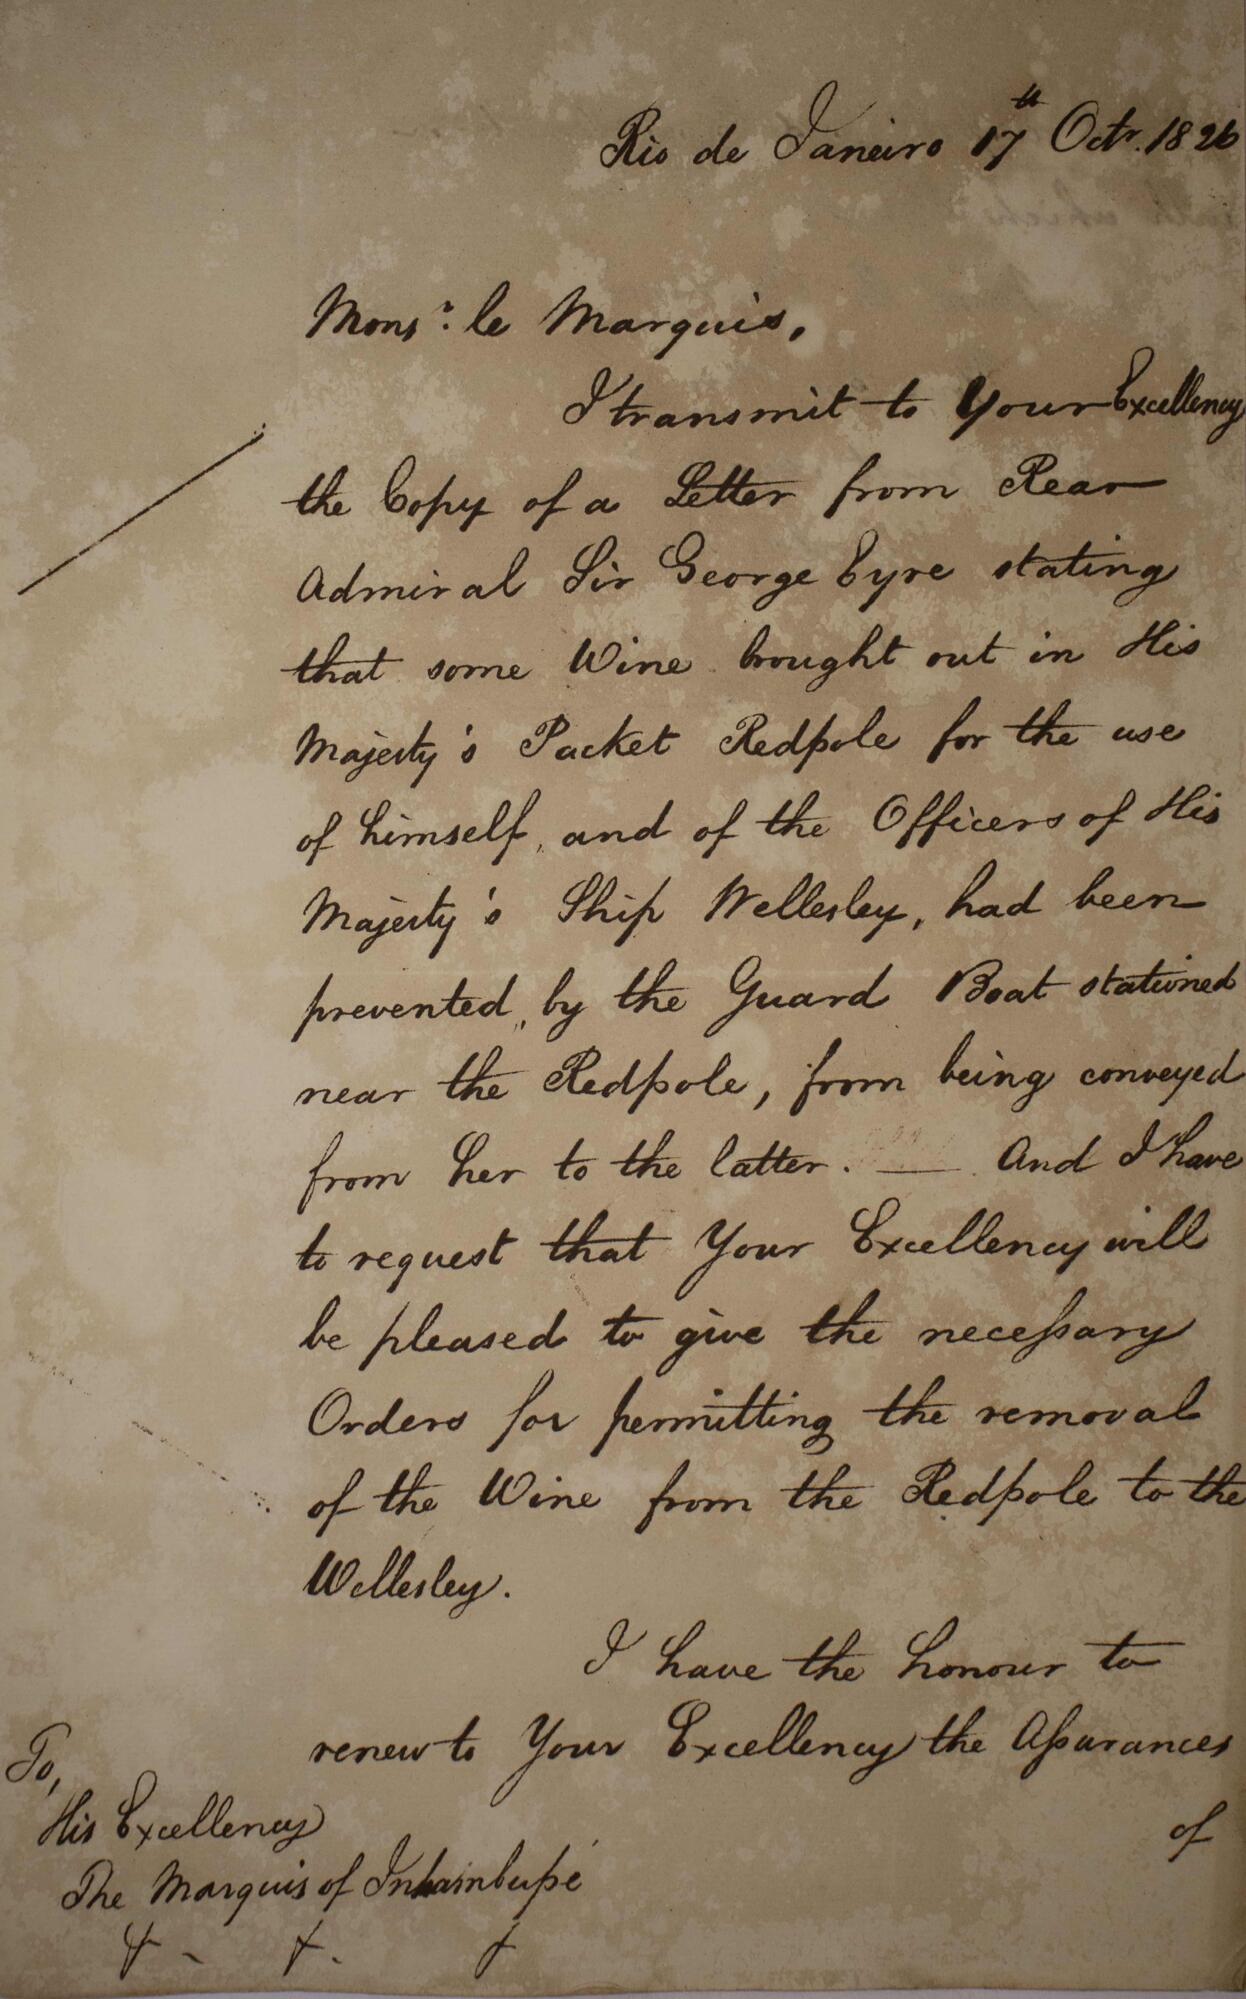 Rio de Janeiro 17th Octr. 1826
Monsr. le Marquis,
I transmit to Your Excellency
the Copy of a Letter from Rear
Admiral Sir George Eyre stating
that some Wine brought out in His
Majesty's Packet Redpole for the use
of himself, and of the Officers of His
Majesty's Ship Wellesley, had been
prevented, by the Guard Boat stationed
near the Redpole, from being conveyed
from her to the latter. — And I have
to request that Your Excellency will
be pleased to give the necessary
Orders for permitting the removal
of the Wine from the Redpole to the
Wellesley.
I have the honour to
renew to Your Excellency the Assurances
of
To,
His Excellency
The Marquis of Inhambupé
&. &. &